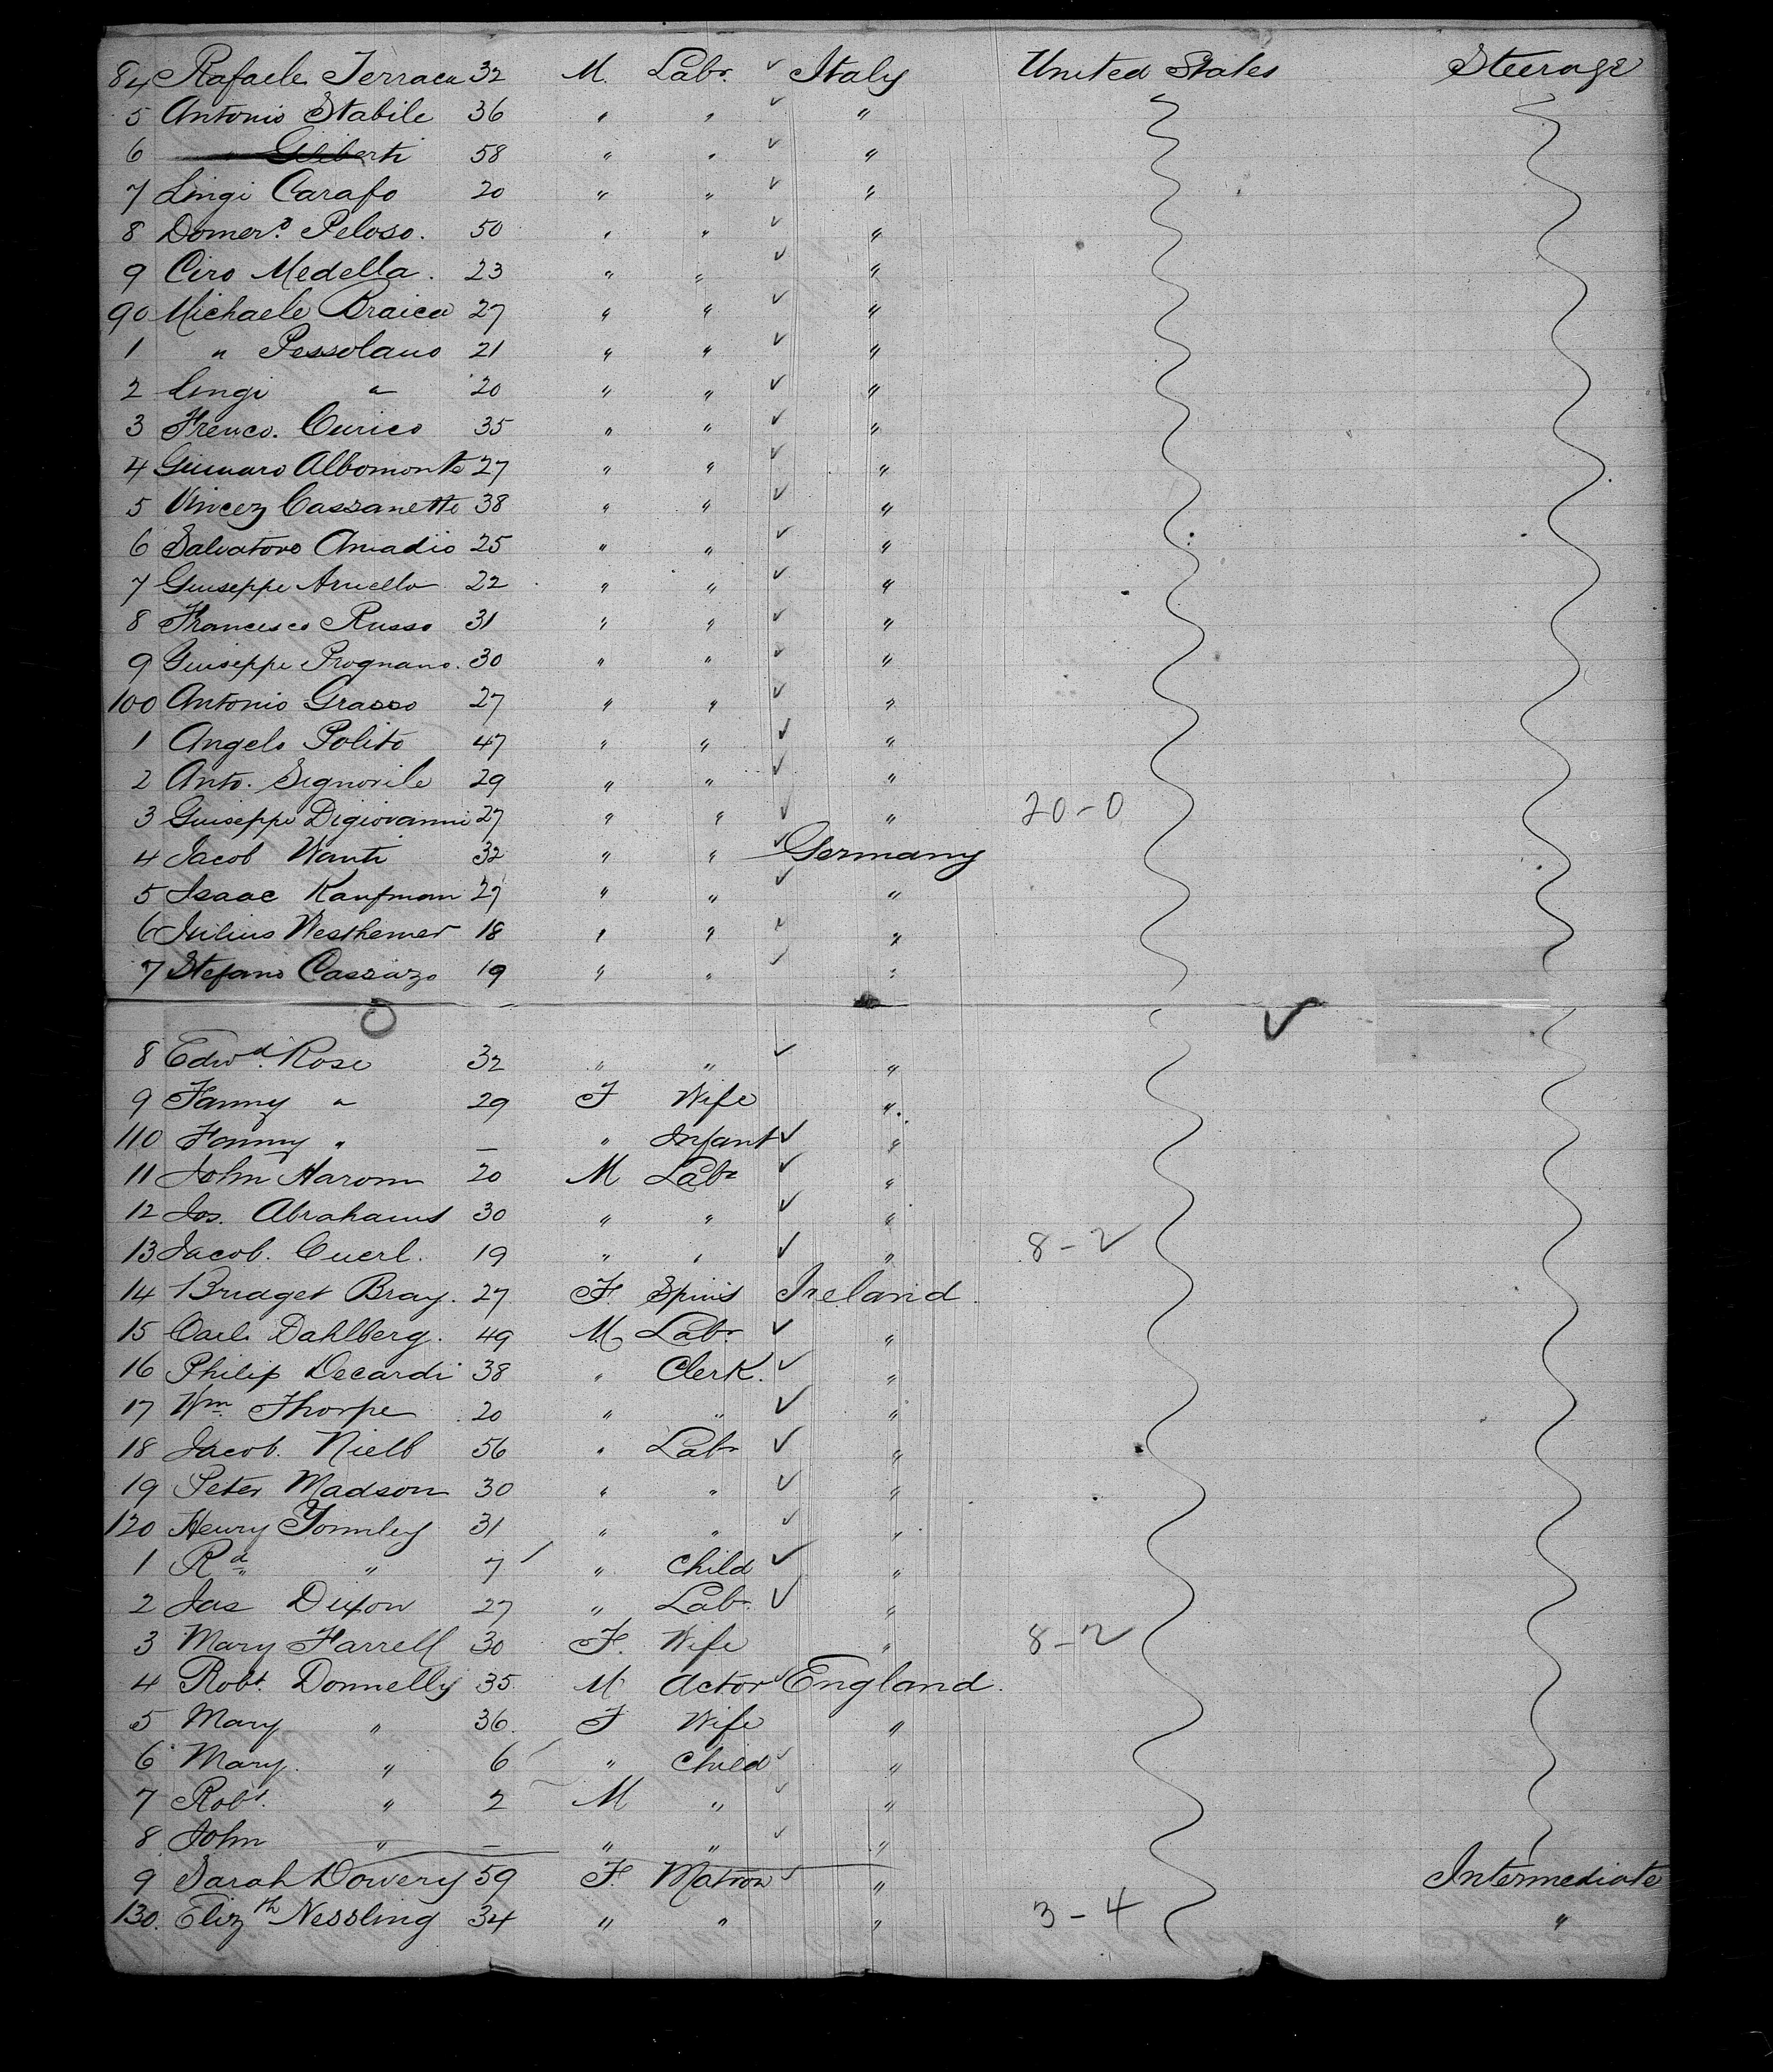 84 Rafaele Terraca 32 M. Labr. ✓ Italy United States Steerage
5 Antonio Stabile 36 " " ✓ "
6 " Giliberti 58 " " ✓ "
7 Lingi Carafo 20 " " ✓ "
8 Domen.o Peloso. 50 " " ✓ "
9 Ciro Medella. 23 " " ✓ "
90 Michaele Braica 27 " " ✓ "
1 " Pessolano 21 " " ✓ "
2 Lingi " 20 " " ✓ "
3 Frenco. Curico 35 " " ✓ "
4 Giunaro Albomonte 27 " " ✓ "
5 Vincez Cassanetti 38 " " ✓ "
6 Salvatore Amadio 25 " " ✓ "
7 Guiseppe Aruello 22 " " ✓ "
8 Francisco Russo 31 " " ✓ "
9 Guiseppe Prognano. 30 " " ✓ "
100 Antonio Grasso 27 " " ✓ "
1 Angelo Polito 47 " " ✓ "
2 Anto. Signorile 29 " " ✓ "
3 Guiseppe Digiovanni 27 " " ✓ " 20-0
4 Jacob Wanti 32 " " ✓ Germany
5 Isaac Kaufman 27 " " ✓ "
6 Julius Westhemer 18 " " ✓ "
7 Stefano Cassazo 19 " " ✓ "
8 Edwd. Rose 32 " " ✓ "
9 Fanny " 29 F Wife "
110 Fanny " — " Infant ✓ "
11 John Harom 20 M Labr ✓ "
12 Jos. Abrahams 30 " " ✓ "
13 Jacob. Cuerl. 19 " " ✓ " 8-2
14 Bridget Bray. 27 F. Spins Ireland.
15 Carl Dahlberg. 49 M Labr ✓ "
16 Philip Decardi 38 " Clerk. ✓ "
17 Wm. Thorpe 20 " " ✓ "
18 Jacob. Nielb 56 " Labr ✓ "
19 Peter Madson 30 " " ✓ "
120 Henry Tomley 31 " " ✓ "
1 Rd " 7 ✓ " Child ✓ "
2 Jas Dixon 27 " Labr. ✓ "
3 Mary Farrell 30 F. Wife " 8-2
4 Robt. Donnelly 35 M Actor ✓ England.
5 Mary " 36. F Wife "
6 Mary. " 6 ✓ " Child ✓ "
7 Robt. " 2 M " ✓ "
8 John " — " " ✓ "
9 Sarah Dowery 59 F. Matron ✓ " Intermediate
130. Elizth Nessling 34 " " " 3-4 "